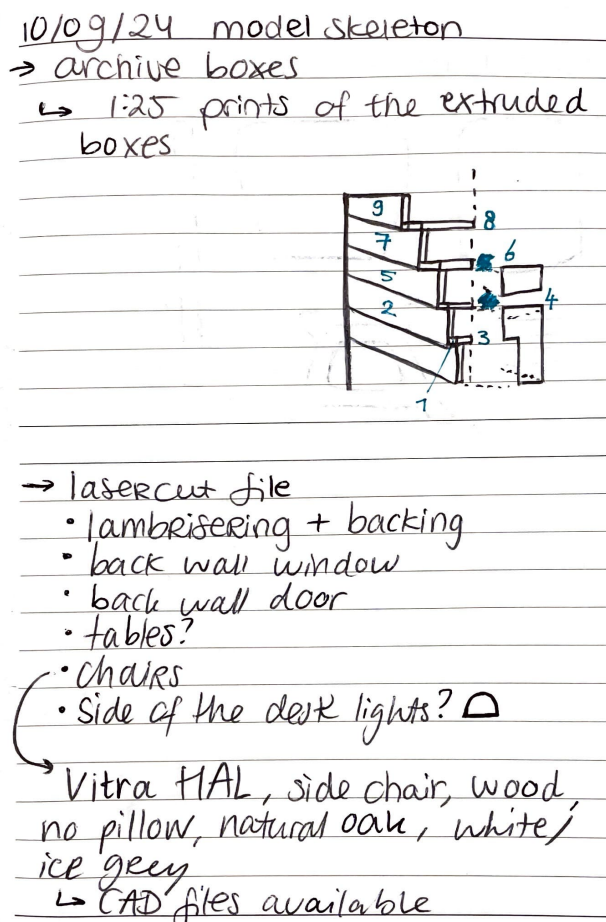 10/09/24 model skeleton
→ archive boxes
↳ 1:25 prints of the extruded
boxes
9
8
7
6
5
4
2
3
1
→ lasercut file
• lambrisering + backing
• back wall window
• back wall door
• tables?
• chairs
• side of the desk lights?
Vitra HAL, side chair, wood,
no pillow, natural oak, white/
ice grey
↳ CAD files available